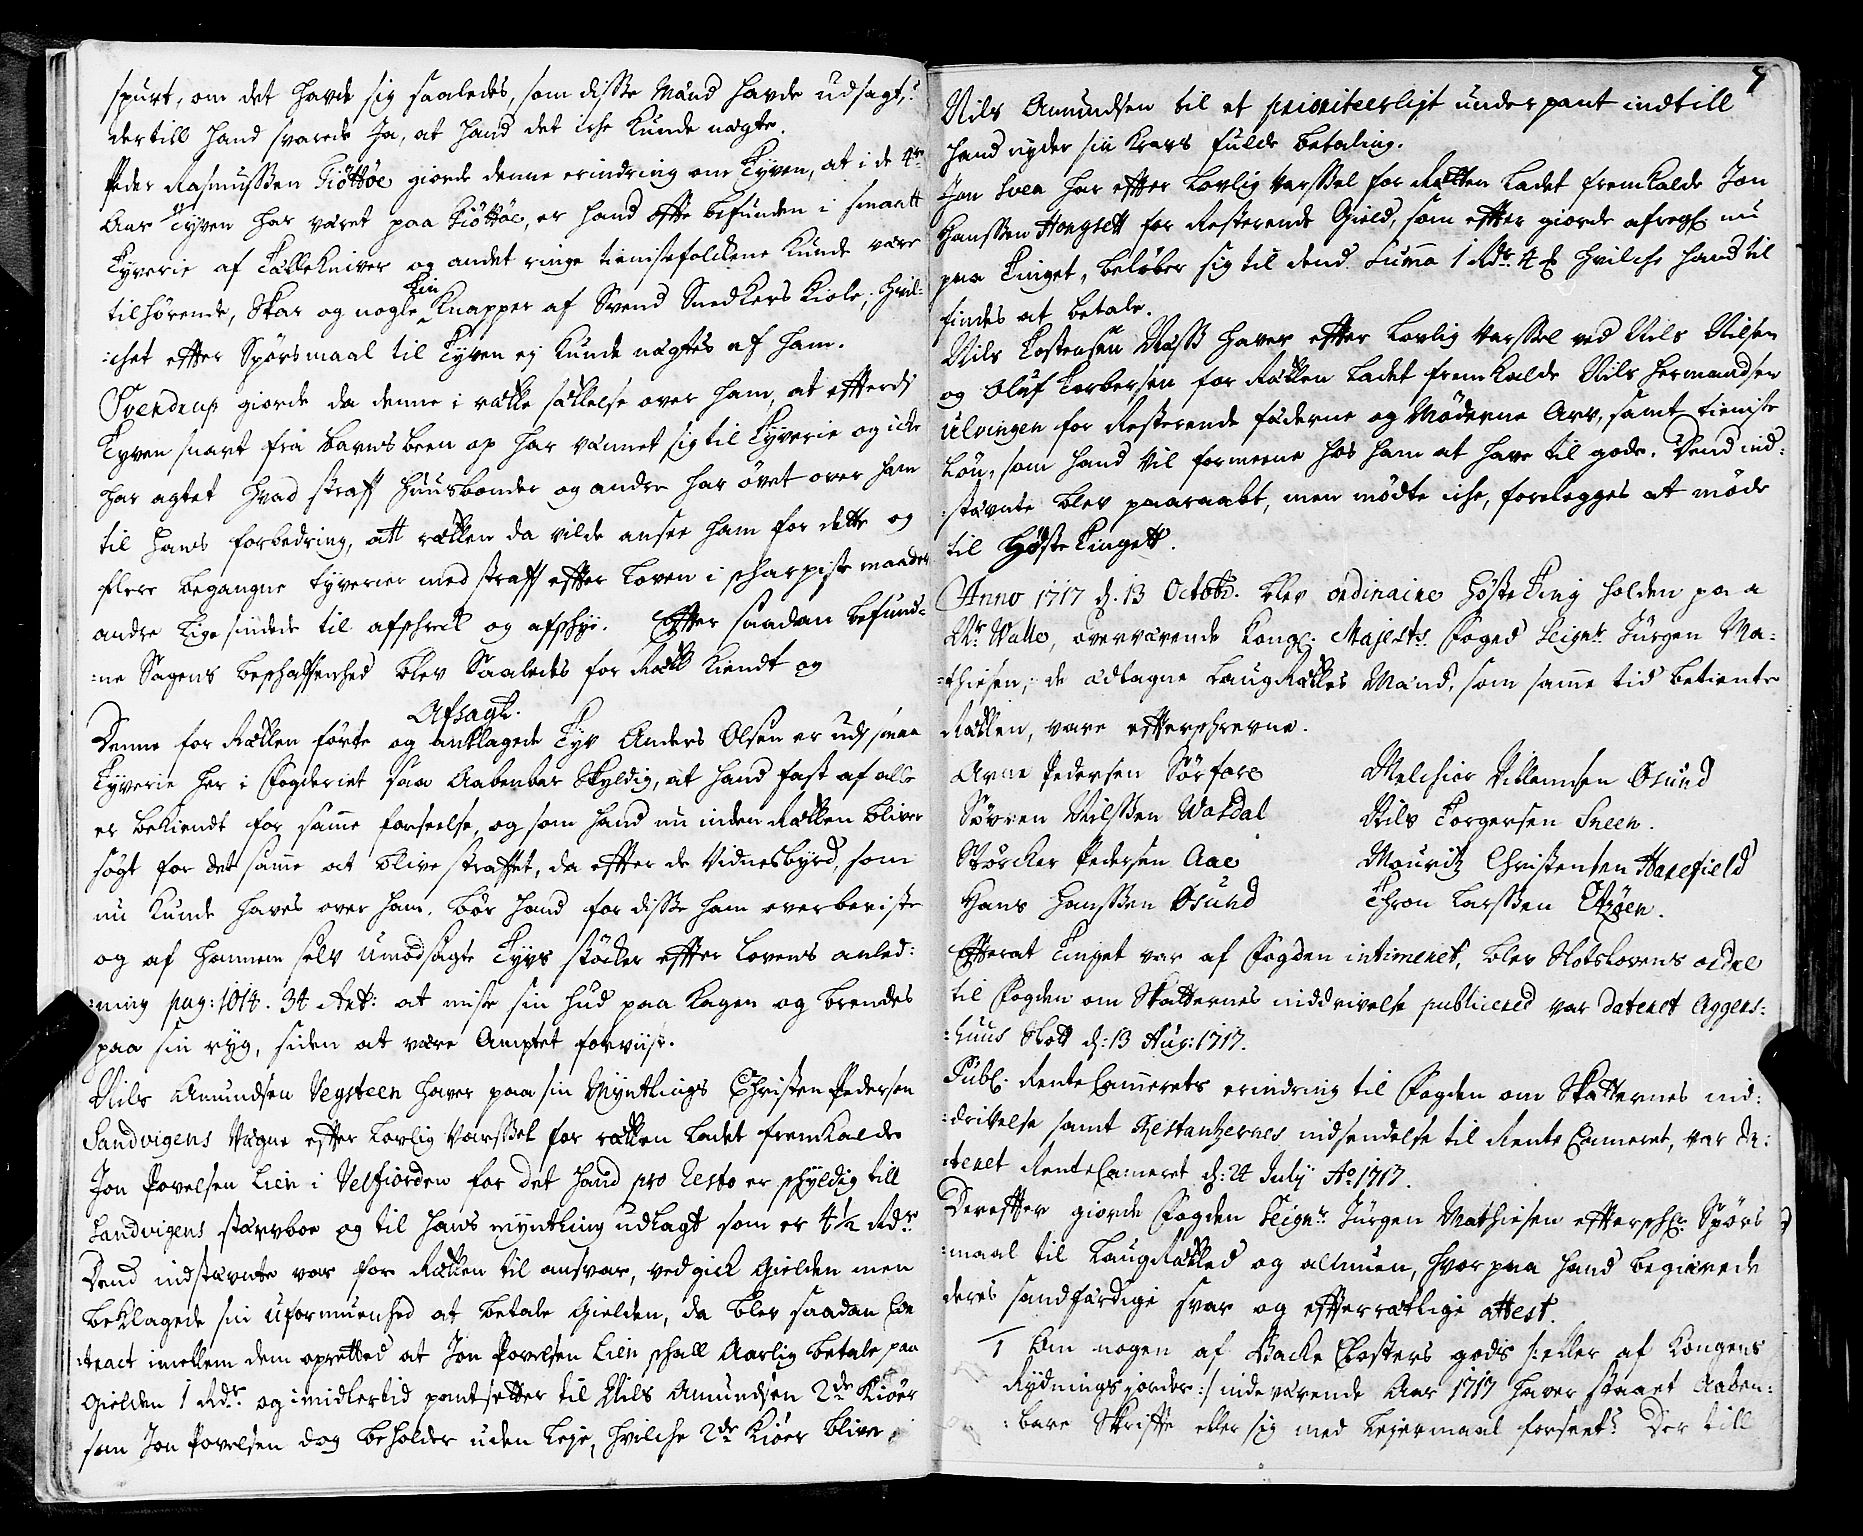 spurt, om det havde sig saaledes, som disse Mænd havde udsagt,?
dertill hand svarede Ja, at hand det iche kunde nægte.
Peder Rasmussen Tiøttøe giorde denne erindring om Tyven, at i de 4re
Aar Tyven har været paa Tiøttøe, er hand offte befunden i smaatt
Tyverie af Tællekniver og andet ringe tienistefolckene kunde være
tilhørende, skar og nogle Tin Knapper af Svend Snedkers Kiole, hvil:
:chet effter Spørsmaal til Tyven ej kunde nægtes af ham.
Svendrup giorde da denne i rætte sættelse over ham, at efferdj
Tyven snart fra barns been op har vannet sig til Tyverie og icke
har agtet hvad straff huusbonder og andre har øvet over ham
til hans forbedring, att rætten da vilde ansee ham for dette og
flere begangne tyverier med straff effter Loven i scharpiste maader
andre ligesindede til afschreck og afschye. Effter saadan befund=
=ne Sagens beschaffenhed blev Saaledes for Rætt kiendt og
Afsagt.
Denne for Rætten førte og anklagede Tyv Anders Olsen er udj smaa
Tyverie her i fogderiet saa Aabenbar Skyldig, at hand fast af alle
er bekiendt for samme forseelse, og som hand nu inden Rætten bliver
søgt for det samme at blive straffet, da effter de Vidnesbyrd, som
nu kunde haves over ham, bør hand for disse ham overbeviste
og af hannem selv Umodsagte Tyvs støcker effter Lovens anled:
:ning pag: 1014. 34 Art: at miste sin hud paa kagen og brendes
paa sin ryg, siden at være Amptet forviist.
Nils Amundsen Vegsteen haver paa sin Myntlings Christen Pedersen
Sandvigens Vægne effter Lovlig Varssel for rætten ladet fremkalde
Jon Povelsen Lien i Velfiorden for det hand pro resto er schyldig till
Sandvigens stærvboe og til hans myntling udlagt som er 4½ Rdr
Dend indstævnte var for Rætten til ansvar, vedgick Gielden men
beklagede sin Uformuenhed at betale Gielden, da blev saadan Con
:tract imellem dem oprettet at Jon Povelsen Lien schall Aarlig betale paa
Gielden 1 Rdr og imidlertid pantsetter til Nils Amundsen 2de Kiøer
som Jon Povelsen dog beholder uden Leje, hvilche 2de Kiøer bliver
Nils Amundsen til et prioriteerligt underpant indtill
hand nyder sin Kravs fulde betaling.
Jon Svea har effter Lovlig Varssel for Rætten Ladet fremkalde Jon
Hanssen Hongsett for Resterende Gield, som effter giorde afregn: nu
paa Tinget, beløber sig til dend Suma 1 Rdr 4 ß hvilche hand til
findes at betale.
Nils Tostensen Næss haver effter Lovlig Varssel ved Nils Nilsen
og Oluf Torbersen for Rætten ladet fremkalde Nils Hermandsen
Ulvingen for Resterende fæderne og Møderne Arv, samt tieniste
Løn, som hand vil formeene hos ham at have til gode. Dend ind:
:stævnte blev paaraabt, men mødte iche, forelegges at møde
til Høste Tingett.
Anno 1717 d. 13 Octobr. blev ordinaire Høste Ting holden paa
Nr. Walle, overværende Kongl. Majests. foged Seignr. Jürgen Ma=
=thiesen; de ædtagne LaugRættes Mænd, som same tid betiente
Rætten, vare effterschrevne.
Arne Pedersen Sørfare Melchior Villumsen Øsund
Søvren Nilssen Wasdal Nils Torgersen Sneen.
Størcker Pedersen Aae Mouritz Christensen Harefield
Hans Hanssen Øsund Thron Larssen
Efferat Tinget var af fogden intimeret, blev Slotslovens ordre
til fogden om Skatternes inddrivelse publiceret var dateret Aggers:
:huus Slott d: 13 Aug: 1717.
Publ: RenteCamerets erindring til fogden om Skatternes ind:
:drivelse samt Restantzernes indsendelse til Rente Cameret, var da:
:teret RenteCameret d: 24 July Ao 1717.
Dereffter giorde fogden Seignr. Jürgen Mathiesen effterschr: Spørs
:maal til LaugRætted og almuen, hvorpaa hand begiærede
deres sandfærdige svar og effterrætlige attest.
1 Om nogen af Backe Closters gods :/: eller af Kongens
Rydningsjorder :/ indeværende Aar 1717 haver staaet Aaben:
:bare Skriffte eller sig med Lejermaal forseet? Der till